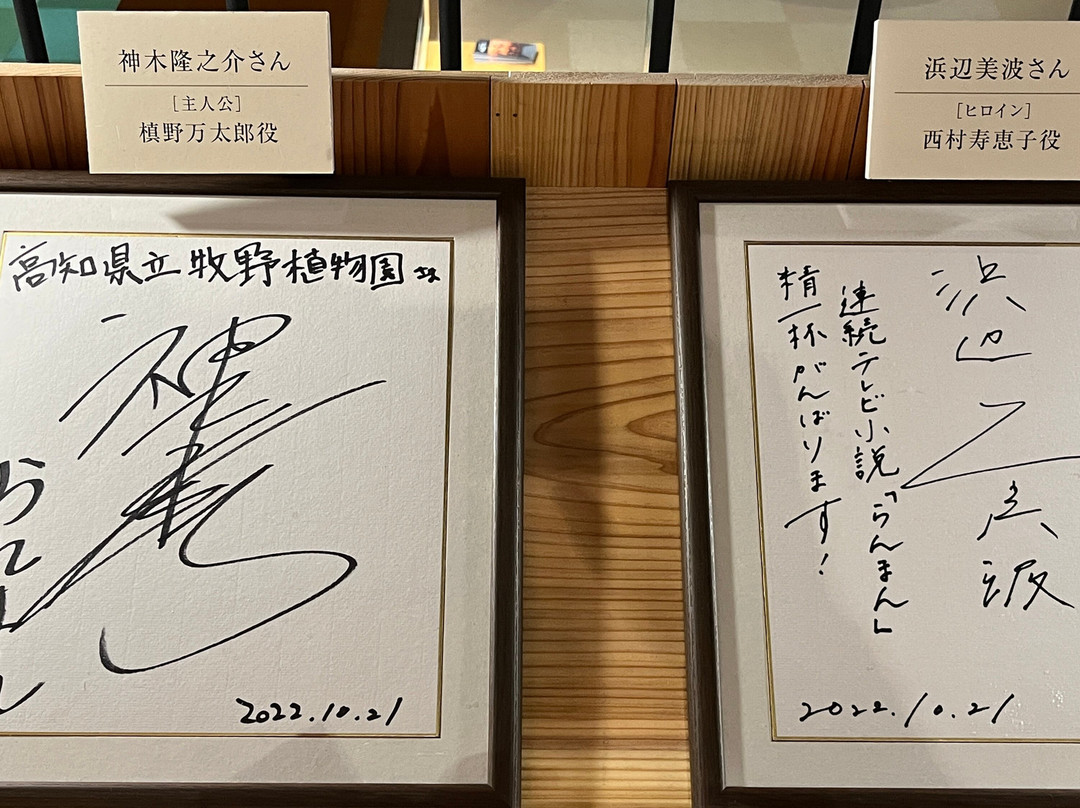 神木隆之介さん
[主人公]
槙野万太郎役
高知県立牧野植物園さま
2022.10.21
浜辺美波さん
[ヒロイン]
西村寿恵子役
浜辺美波
連続テレビ小説「らんまん」
精一杯がんばります!
2022.10.21